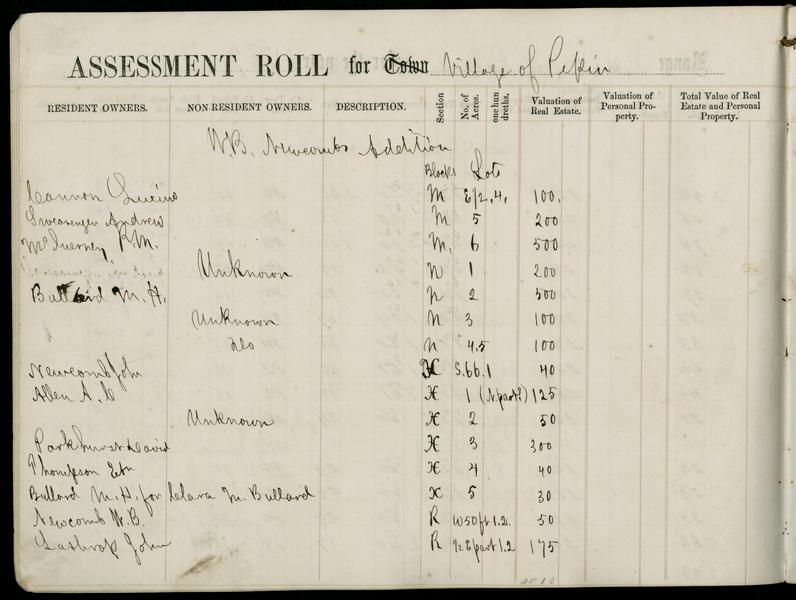 ASSESSMENT ROLL for Town Village of Pepin
RESIDENT OWNERS. NON-RESIDENT OWNERS. DESCRIPTION. Section No. of Acres. one hundredths. Valuation of Real Estate. Valuation of Personal Property. Total Value of Real Estate and Personal Property.
W.B. Newcombs Addition
Blocks Lots
Cannon Lucius M E/2.4. 100.
Swearengen Andrew M 5 200
McInerney P.M. M. 6 500
Unknown N 1 200
Bullard M. H. N 2 500
Unknown N 3 100
Do N 4.5 100
Newcomb John X S.66.1 40
Allen A. C X 1 (N. part) 125
Unknown X 2 50
Parkhurst David X 3 300
Thompson X 4 40
Bullard M. H. for Clara M. Bullard X 5 30
Newcomb W.B. R W50ft 1.2. 50
Lathrop John R E part 1.2 175